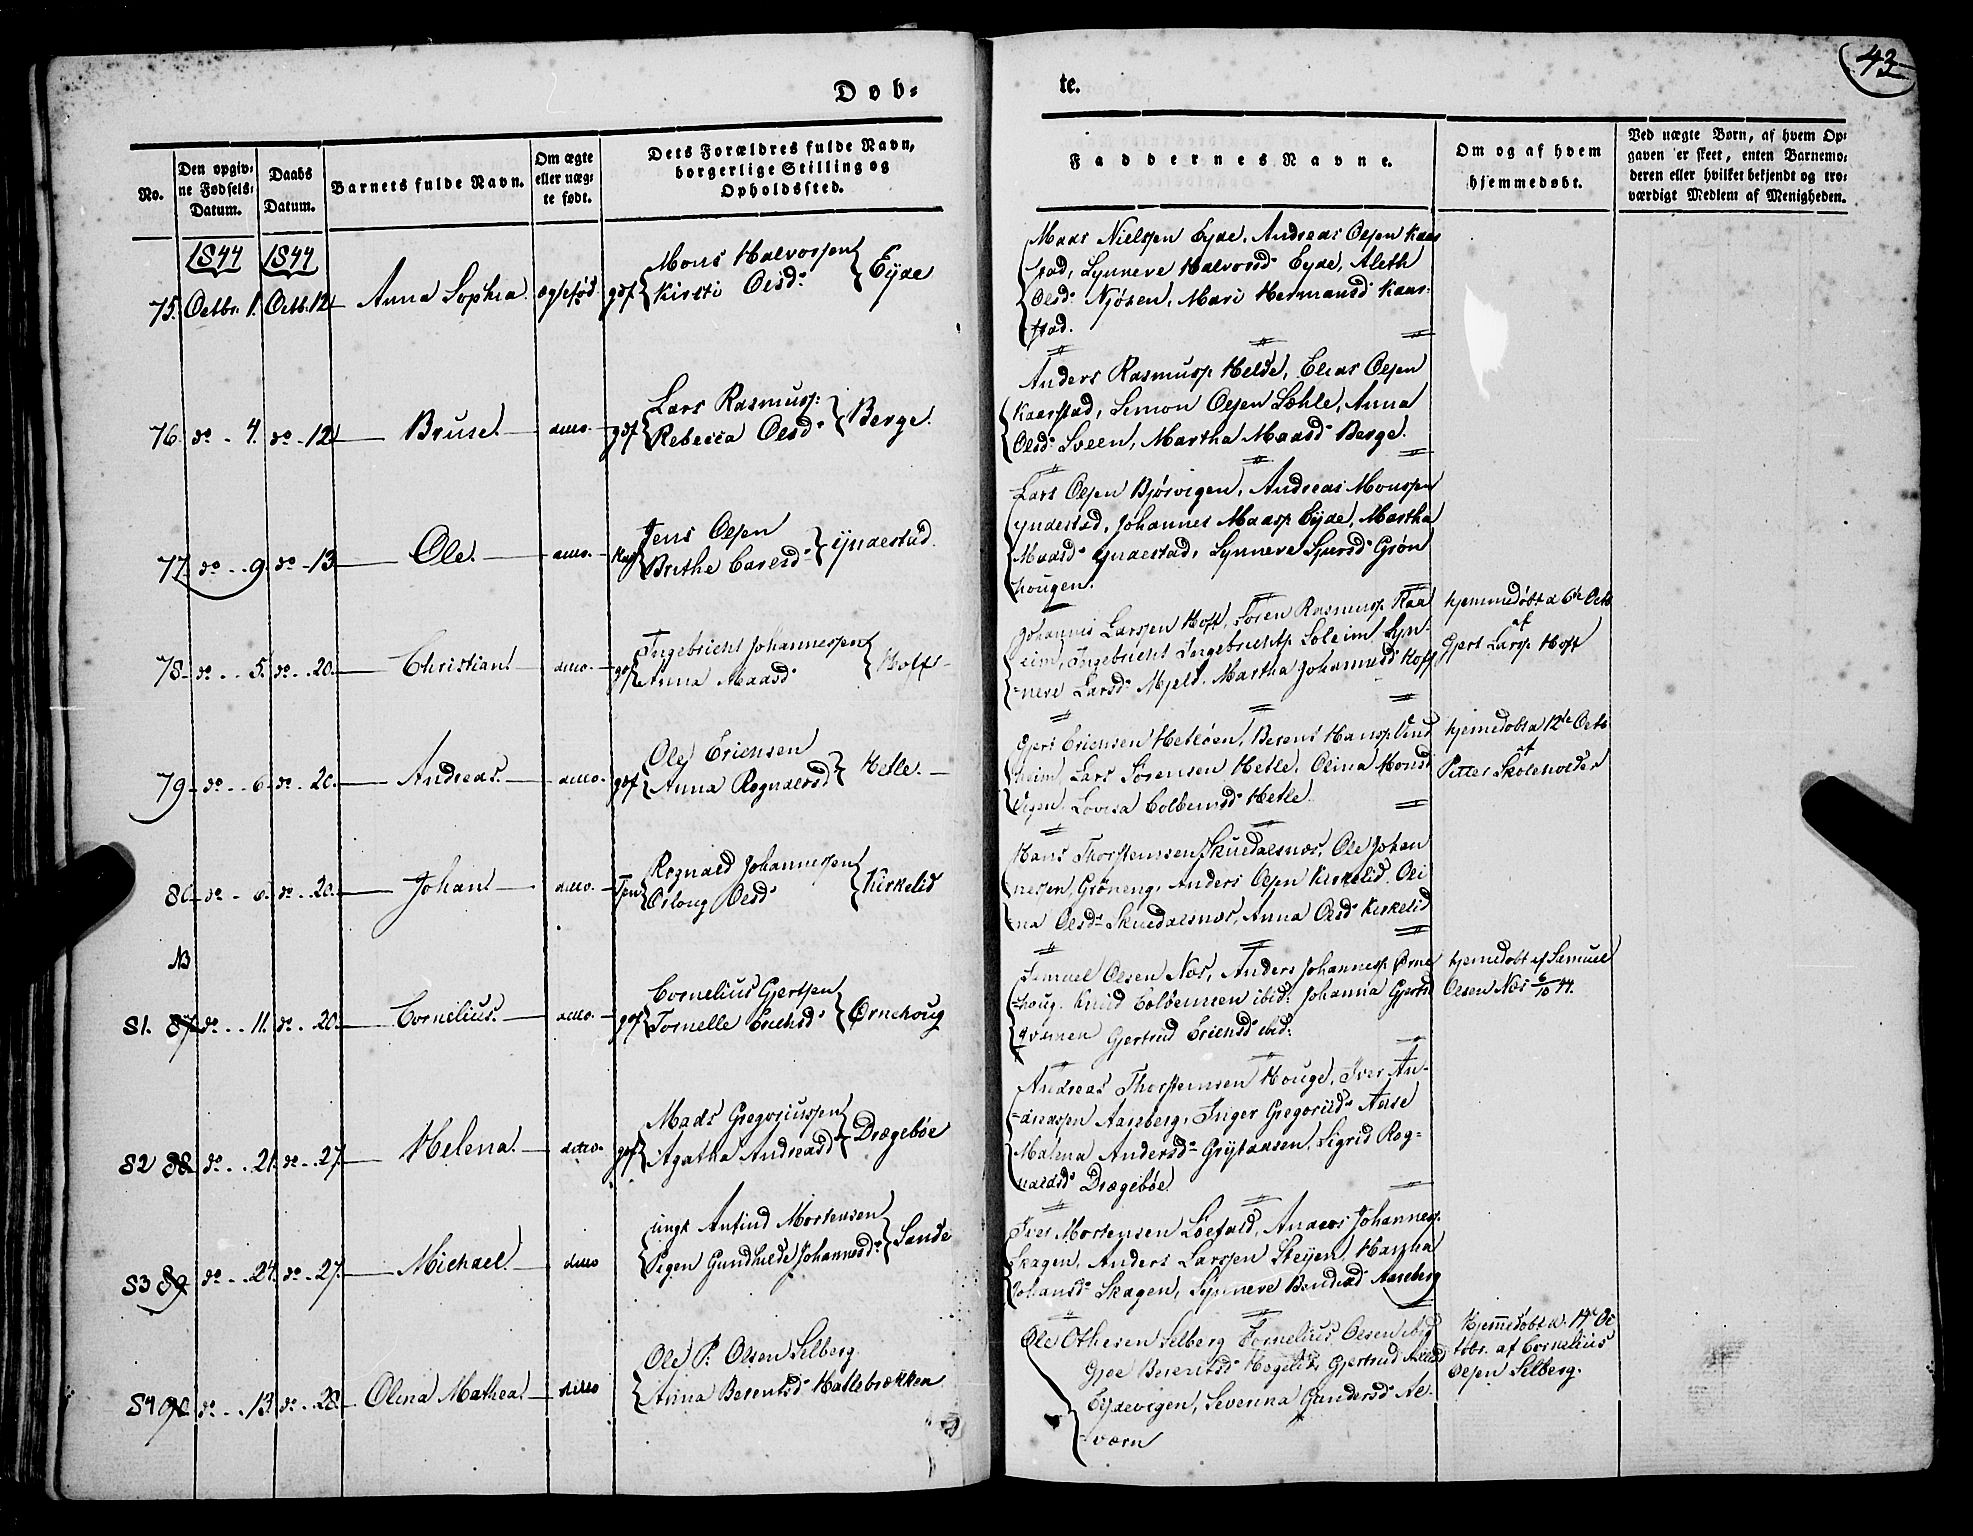 Døb-
te.
43
No.
Den opgiv-
ne Fødsels-
Datum.
Daabs
Datum.
Barnets fulde Navn.
Om ægte
eller uæg-
te født.
Dets Forældres fulde Navn,
borgerlige Stilling og
Opholdssted.
Faddernes Navne.
Om og af hvem
hjemmedøbt.
Ved uægte Børn, af hvem Op-
gaven er skeet, enten Barnemo-
deren eller hvilket bekjendt og tro-
værdigt Medlem af Menigheden.
1844 1844
75. Octbr. 1. Octb. 12 Anna Sophia ægtefød
gdf Mons Halvorssen
Kirsti Olsd: Eyde
Maas Nielssen Eyde, Andreas Olsen Kaar
stad, Synneve Halvorsd Eyde, Aleth
Olsd: Njøsen, Mari Hermansd Kaar-
stad.
76. do - 4. do - 12 Bruse. ditto
gdf Lars Rasmuss:
Rebecca Olsd: Berge.
Anders Rasmuss. Helde, Elias Olsen
Kaarstad, Simon Olsen Sæhle, Anna
Olsd: Sveen, Martha Maasd Berge.
77. do - 9. do - 13 Ole. ditto
Jens Olsen
Brithe Carlsd: Yndestad.
Lars Olsen Bjørvigen, Andreas Monssen
Yndestad, Johannes Maass Eyde, Martha
Maasd: Yndestad, Synneve Sjursd Grøn
hougen.
78. do - 5. do - 20. Christian ditto
gdf Ingebricht Johannessen
Anna Maasd: Hoff
Johannis Larssen Hoff, Søren Rasmuss. Raa
eim, Ingebricht Ingebrichts. Soleim, Syn-
neve Larsd: Mjeld. Martha Johannesd Hoff
hjemmedøbt d 6te Octb
af
Gjert Larss. Hoff
79. do - 6. do - 20. Andreas. ditto
gdf Ole Ericnsen
Anna Rognalsd Hetle.
Gjert Ericnsen Hetleøen, Berent Hanss. Vind
heim, Lars Sørensen Hetle, Olina Monsd
Vigen, Lovisa Colbensd Hetle.
hjemedøbt d 12te Octb
af
Petter Skoleholder
80. do - 8. do - 20. Johan ditto
Rognald Johannessen
Osloug Olsd: Kirkelid
Hans Thorstenssen Skuedalsnæs, Ole Johan
nessen Grøneng, Anders Olsen Kirkelid. Oli
na Olsd: Skuedalsnæs, Anna Olsd Kirkelid
NB
81. 87 do - 11. do - 20. Cornelius. ditto
gdf Cornelius Gjertsen
Tornelle Erichsd: Ørnehoug
Simuel Olsen Næs, Anders Johanness. Ørne
houg. Knud Colbennsen ibid: Johanna Gjertsd
Qvamen Gjertrud Ericnsd ibid:
hjemedøbt af Simuel
Olsen Næs 6/10 44.
82 88. do - 21. do - 27. Helena. ditto
gdf Mads Gregoriussen
Agatha Andreasd Drægebøe
Andreas Thorstensen Houge, Iver An-
dreassen Aareberg, Inger Gregorisd: Aase
Malena Andersd: Grytaasen, Sigrid Rog-
nalsd: Drægebøe.
83 89 do - 24. do - 27. Michael. ditto
ungk Anfind Mortensen
Pigen Gundhilde Johannesd: Sande
Iver Mortensen Løefald, Anders Johanness.
Skagen, Anders Larssen Steyen, Martha
Johansd: Skagen, Synneve Bendixd Aareberg
84 90 do - 13. do - 28. Olena Mathea. ditto
Ole P. Olsen Selberg
Anna Berentsd: Hatlebrækken
Ole Othesen Selberg Cornelius Olsen ibid
Gjoe Berentsd: Hegelid, Gjertrud
Eydevigen, Severina Gundersd: Al-
værn
Hjemmedøbt d. 14de Oc
tobr. af Cornelius
Olsen Selberg.